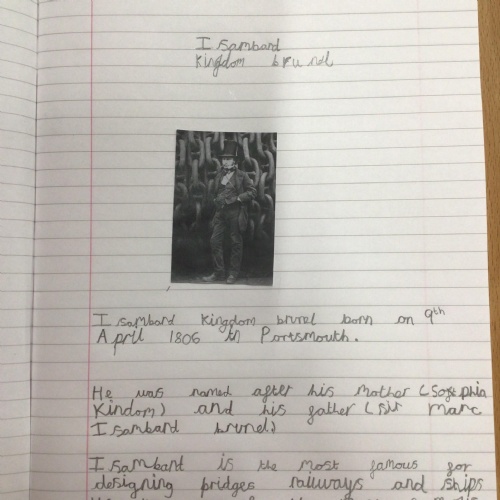 Isambard
Kingdom brunel
Isambard Kingdom brunel born on 9th
April 1806 in Portsmouth.
He was named after his Mother (Sophia
Kindom) and his father (sir marc
Isambard brunel)
Isambard is the most famous for
designing bridges railways and ships